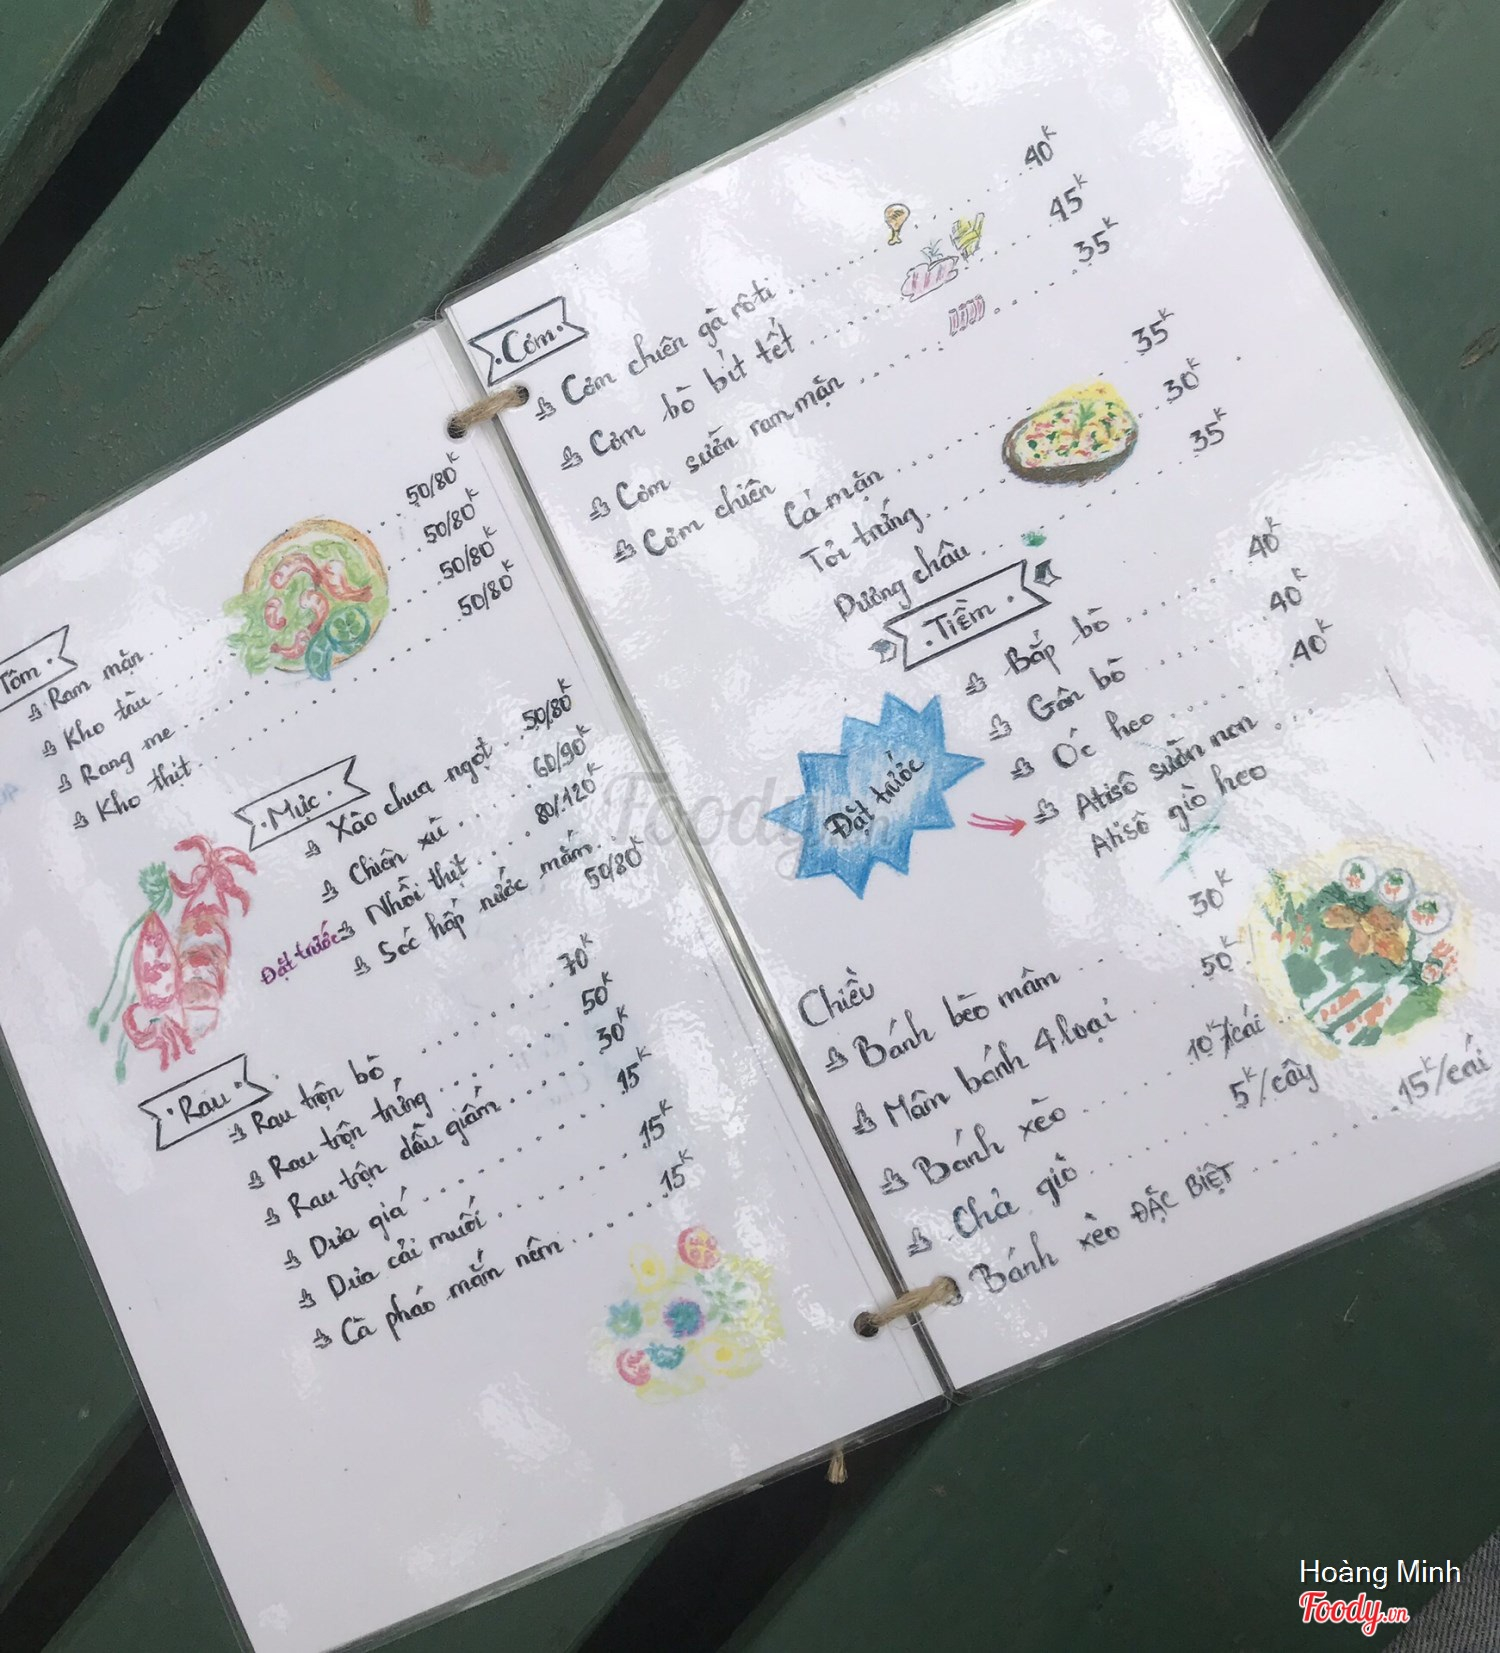 Tôm
Ram mặn ..... 50/80K
Kho tàu ..... 50/80K
Rang me ..... 50/80K
Kho thịt ..... 50/80K
Mực
Xào chua ngọt ... 50/80K
Chiên xù .... 60/90K
Nhồi thịt .... 80/120K
Đặt trước
Sốc hấp nước mắm .. 50/80K
Rau
Rau trộn bò ..... 70K
Rau trộn trứng ..... 50K
Rau trộn dầu giấm ..... 30K
Dưa giá ..... 15K
Dưa cải muối ..... 15K
Cà pháo mắm nêm ..... 15K
Cơm
Cơm chiên gà rô-ti ..... 40K
Cơm bò bít tết ..... 45K
Cơm sườn ram mặn ..... 35K
Cơm chiên
Cá mặn ..... 35K
Tỏi trứng ..... 30K
Dương châu ..... 35K
Tiềm
Bắp bò ..... 40K
Gân bò ..... 40K
Óc heo ..... 40K
Đặt trước
Atisô sườn non ...
Atisô giò heo
Chiều
Bánh bèo mâm ..... 30K
Mâm bánh 4 loại ..... 50K
Bánh xèo ..... 10K/cái
Chả giò ..... 5K/cây
Bánh xèo ĐẶC BIỆT ..... 15K/cái
Foody.vn
Hoàng Minh
Foody.vn